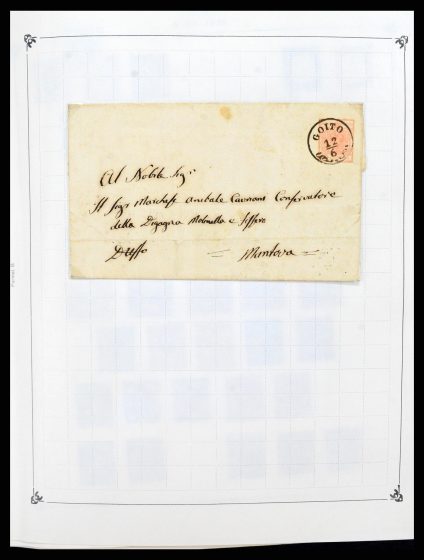 GOITO
12
6
Al Nobile Sigr
Il Sigr Marchese Anibale Cavriani Conservatore
della Digagna Molinella e
D'Uffo
Mantova